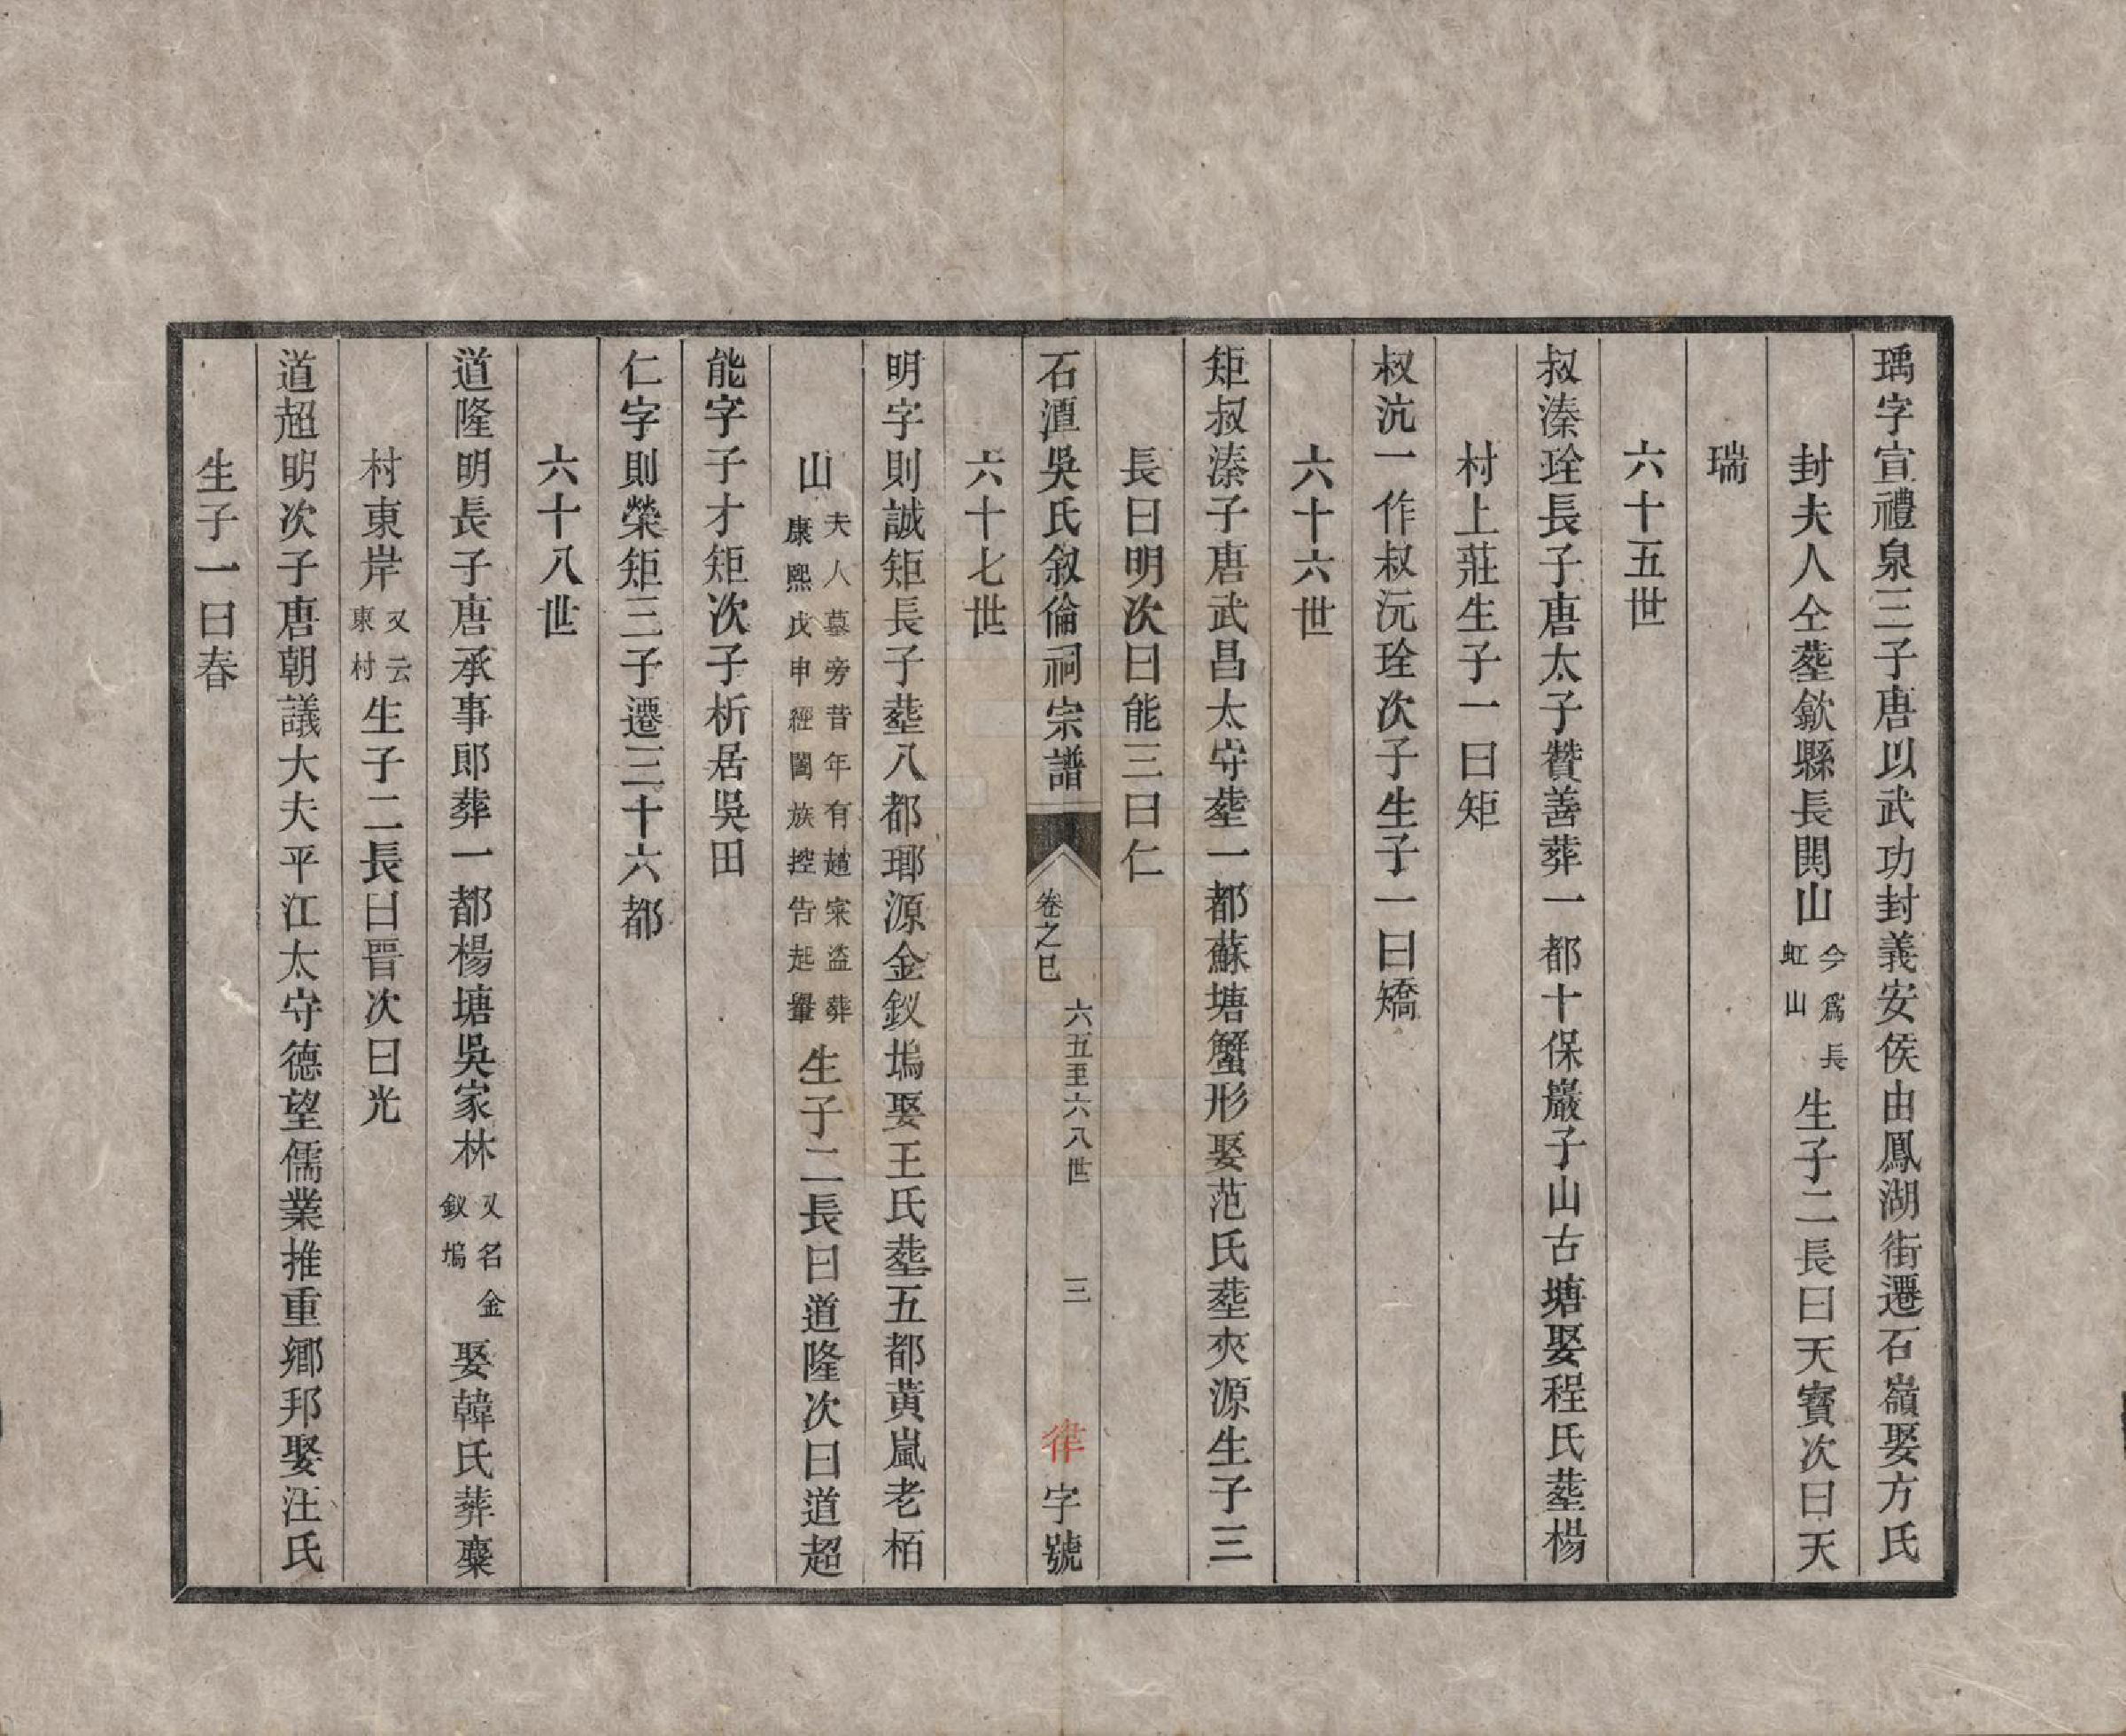 瑀字宣禮泉三子唐以武功封義安侯由鳳湖街遷石嶺娶方氏
封夫人仝塟歙縣長閧山今爲長虹山生子二長曰天寳次曰天
瑞
六十五世
叔溱珤長子唐太子贊善葬一都十保巖子山古塘娶程氏塟楊
村上莊生子一曰矩
叔沆一作叔沅珤次子生子一曰矯
六十六世
矩叔溱子唐武昌太守塟一都蘇塘蟹形娶范氏塟夾源生子三
長曰明次曰能三曰仁
石潭吳氏叙倫祠宗譜 卷之巳 六五至六八世 三 律字號
六十七世
明字則誠矩長子塟八都瑯源金釵塢娶王氏塟五都黄嵐老栢
山夫人墓旁昔年有趙宷盜葬康熙戊申經闔族控告起轝生子二長曰道隆次曰道超
能字子才矩次子析居吳田
仁字則榮矩三子遷三十六都
六十八世
道隆明長子唐承事郎葬一都楊塘吳家林又名金釵塢娶韓氏葬槀
村東岸又云東村生子二長曰晋次曰光
道超明次子唐朝議大夫平江太守德望儒業推重鄉邦娶汪氏
生子一曰春